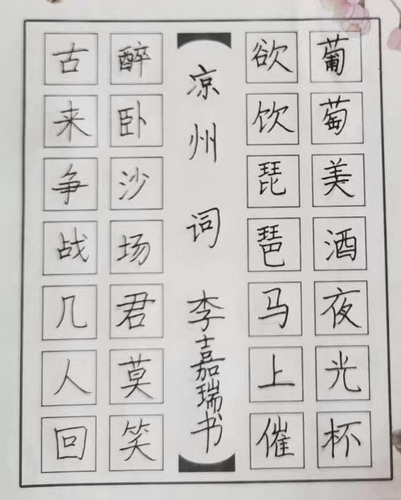 葡萄美酒夜光杯
欲饮琵琶马上催
凉州词 李嘉瑞书
醉卧沙场君莫笑
古来争战几人回